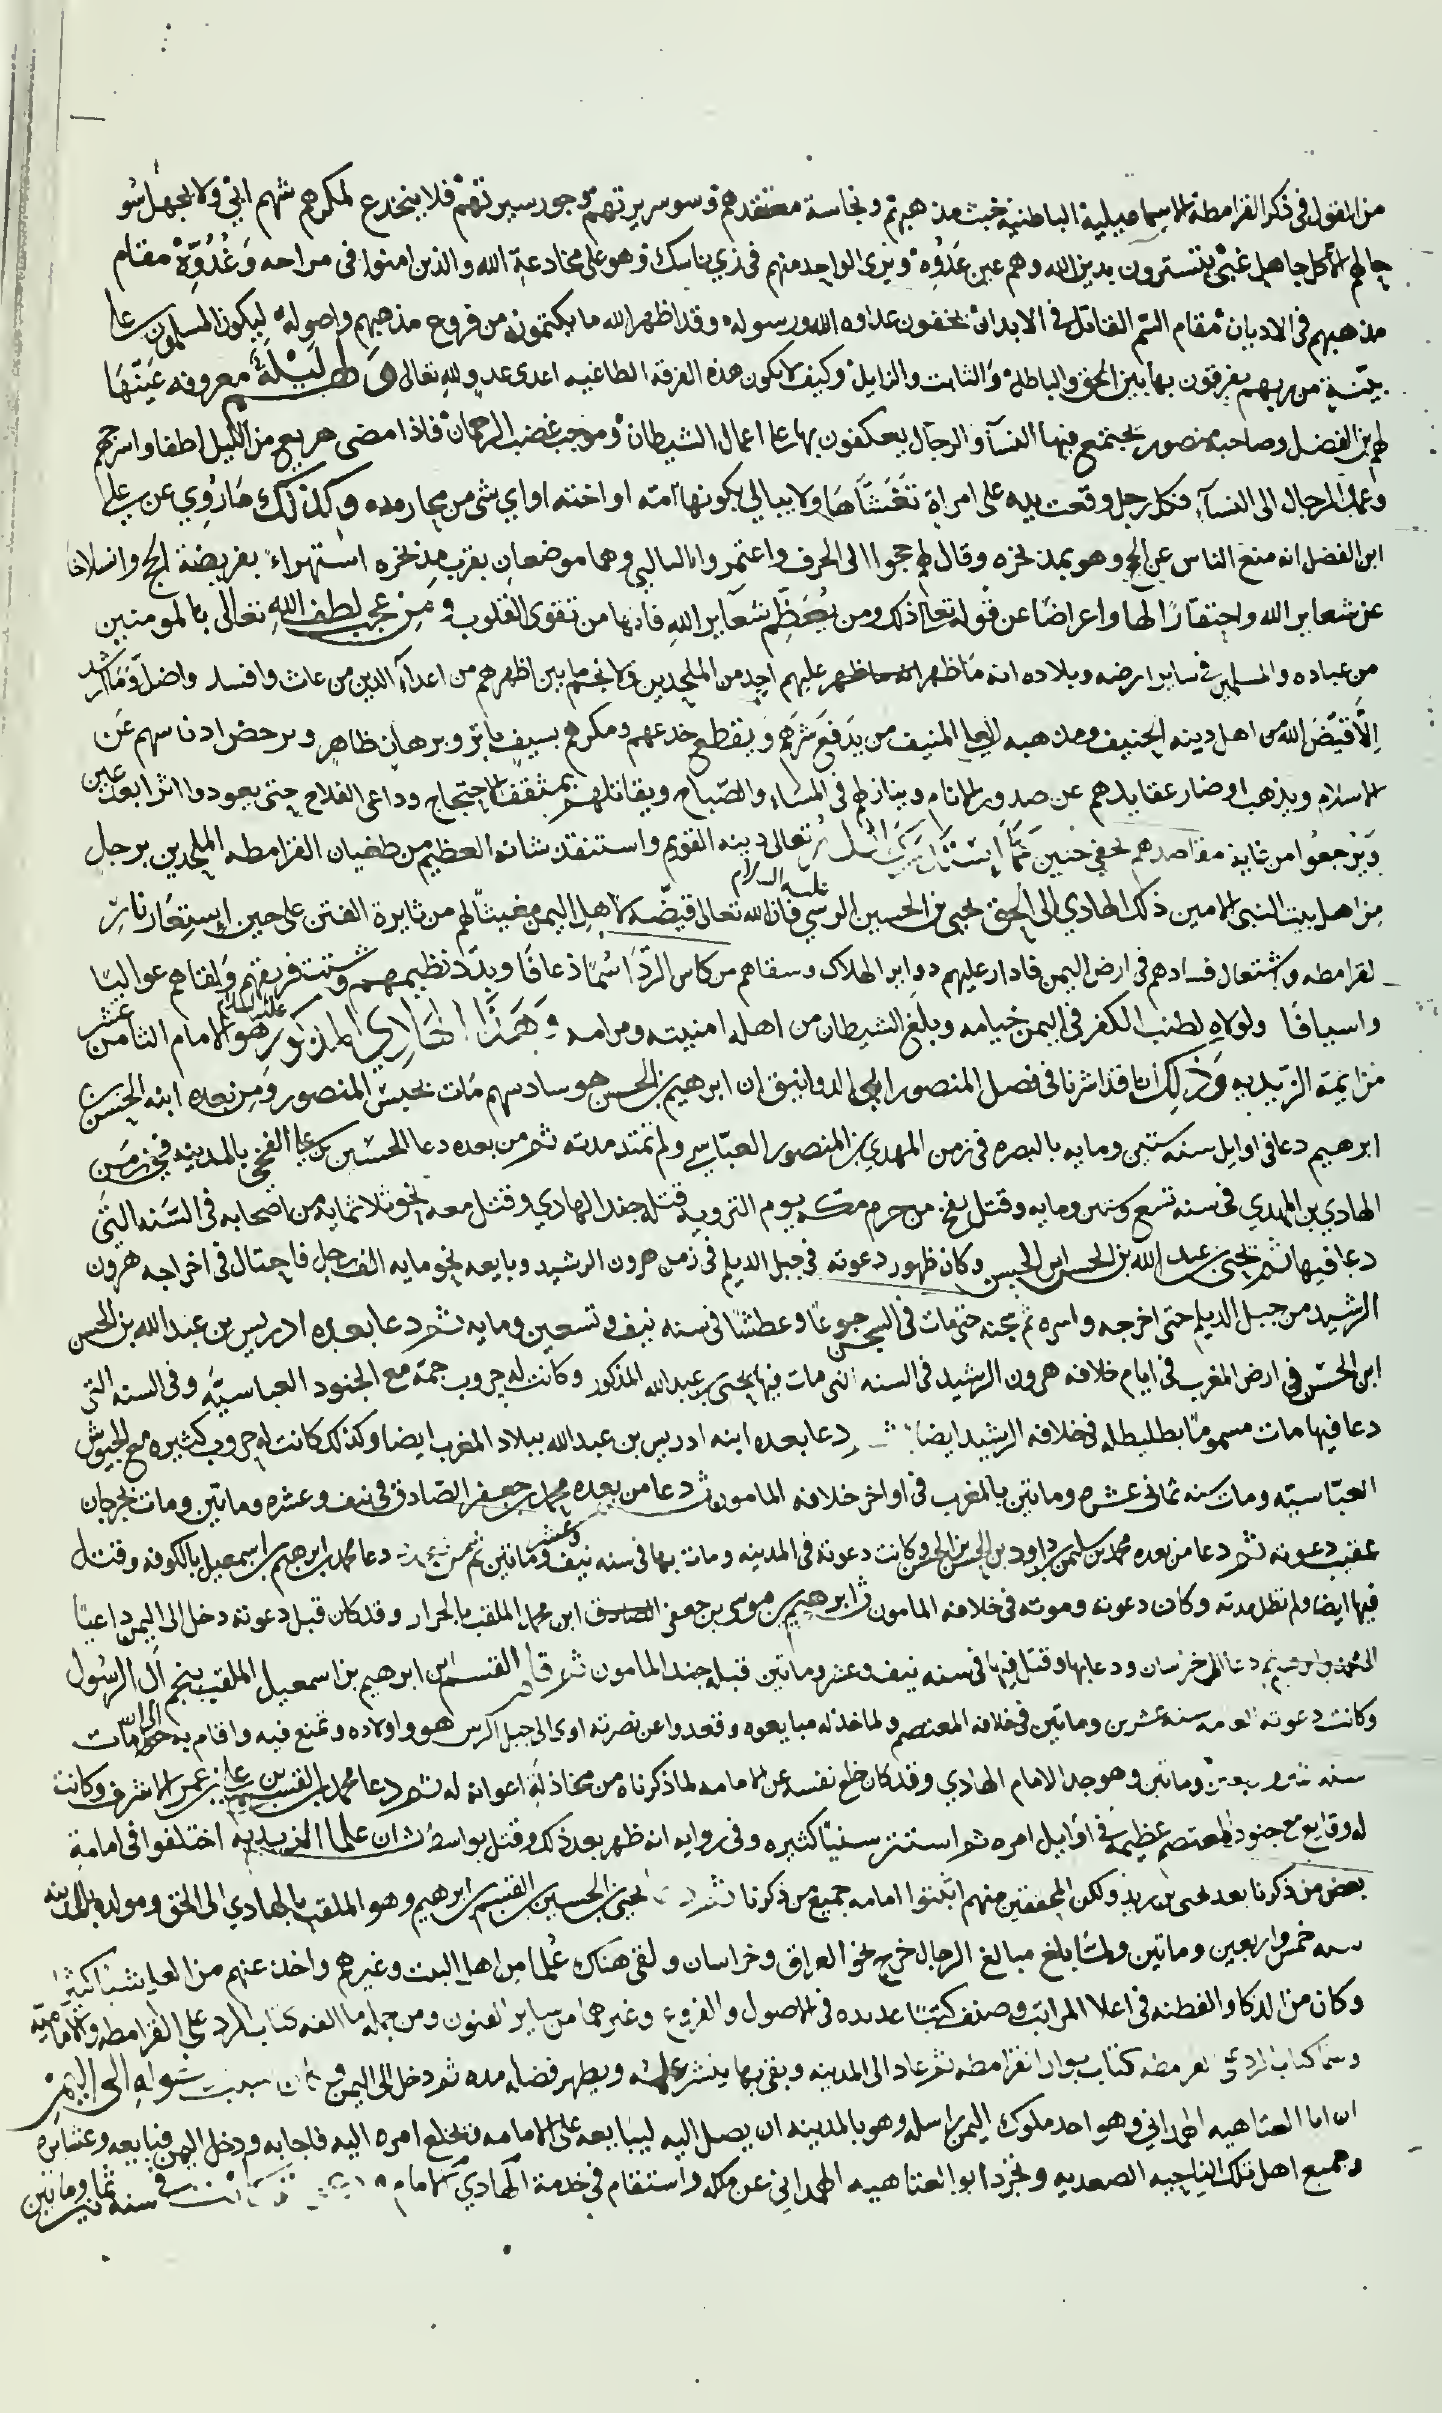 من القول في ذكر القرامطة الاسماعيلية الباطنية خبث مذهبهم ونجاسة معتقدهم وسو سريرتهم وجور سيرتهم فلا ينخدع لمكرهم شهم ابيّ ولا يجهل سو
حالهم الا كل جاهل غبيّ يتسترون بدين الله وهم عين عدوه ويرى الواحد منهم في زي ناسك وهو على مخادعة الله والذين امنوا في مراحه وغدوّه مقام
مذهبهم في الاديان مقام السّم القاتل في الابدان يخفون عداوه الله ورسوله وقد اظهر الله ما يكتمونه من فروع مذهبهم واصوله ليكون المسلمون على
بيّنة من ربهم يفرقون بها بين الحق والباطل والثابت والزايل وكيف لا يكون هذه الفرقة الطاغيه اعدى عدو لله تعالى ولهم ليلة معروفه عيّنها
لهم ابن الفضل وصاحبه منصور يجتمع فيها النسآ والرجال يعكفون بها على اعمال الشيطان وموجب غضب الرحمان فاذا مضى هزيع من الليل اطفاوا سرجهم
وعمد الرجال الى النسآ فكل رجل وقعت يده على امراة تغشّاها ولا يبالي بكونها امّه او اخته او اي شي من محارمه وكذلك ما روي عن علي
ابن الفضل انه منع الناس عن الحج وهو بمذيخره وقال لهم حجوا الى الجرف واعتمروا الى التالبي وهما موضعان بقرب مذيخره استهزاء بفريضة الحج وانسلاخا
عن شعاير الله واحتقارًا لها واعراضًا عن قوله تعالى ذلك ومن يعظّم شعاير الله فانها من تقوى القلوب ومن عجيب لطف الله تعالى بالمومنين
من عباده والمسلمين في ساير ارضه وبلاده انه ما ظهر عليهم احد من الملحدين ولا نجم ما بين اظهرهم من اعدآ الدين من عاث وافسد واضل وما ارشد
الا قيّض الله من اهل دينه الحنيف ومذهبه العالي المنيف من يدفع شرهم ويقطع خدعهم ومكرهم بسيف باتر وبرهان ظاهر ويرحض ادناسهم عن
الاسلام ويذهب اوضار عقايدهم عن صدور الانام وينازلهم في المساء والصباح ويقاتلهم بمثقف الاحتجاج وداعي الفلاح حتى يعودوا اثرا بعد عين
ويرجعوا من غاية مقاصدهم بخفي حنين تعالى دينه القويم واستنقذ شانه العظيم من طغيان القرامطه الملحدين برجل
من اهل بيت النبي الامين ذلك الهادي الى الحق يحيى بن الحسين الرسي عليه السلام فان الله تعالى قيّضه لاهل اليمن مغيثًا لهم من ثايرة الفتن على حين استعار نار
القرامطه واشتعال فسادهم في ارض اليمن فادار عليهم دواير الهلاك وسقاهم من كاس الردا سُمًا ذعافًا وبدّد نظيمهم وشتت فريقهم ولقاهم عواليًا
واسيافًا ولولاه لطنب الكفر في اليمن خيامه وبلغ الشيطان من اهله امنيته ومرامه وهذا الهادي المذكور عليه السلام هو الامام الثامن عشر
من ايمة الزيديه وذلك انا قد اشرنا في فصل المنصور ابي الدوانيق ان ابرهيم بن الحسن هو سادسهم مات بحبس المنصور ومن بعده ابنه الحسن بن
ابرهيم دعا في اوايل سنه ستين ومايه بالبصره في زمن المهدي بن المنصور العباسي ولم تمتد مدته ثم من بعده دعا الحسين بن علي الفخي بالمدينه في زمن
الهادي بن المهدي في سنه تسع وستين ومايه وقتل بفخ من حرم مكه يوم الترويه قتله جند الهادي وقتل معه نحو ثلاثمايه من اصحابه في السّنه التي
دعا فيها ثم يحيى بن عبد الله بن الحسن ابن الحسن وكان ظهور دعوته في جبل الديلم في زمن هرون الرشيد وبايعه نحو مايه الف رجل فاحتال في اخراجه هرون
الرشيد من جبل الديلم حتى اخرجه واسره ثم سجنه حتى مات في السجن جوعًا وعطشًا في سنه نيف وتسعين ومايه ثم دعا بعده ادريس بن عبد الله بن الحسن
ابن الحسن في ارض المغرب في ايام خلافه هرون الرشيد في السنه التي مات فيها يحيى بن عبد الله المذكور وكانت له حروب جمة مع الجنود العباسيّه وفي السنه التي
دعا فيها مات مسمومًا بطليطله في خلافه الرشيد ايضا دعا بعده ابنه ادريس بن عبد الله ببلاد المغرب ايضا وكذلك كانت له حروب كثيره مع الجيوش
العبّاسيّه ومات سنه ثماني عشره وماتين بالمغرب في اواخر خلافه المامون ثم دعا من بعده محمد بن جعفر الصّادق في نيف وعشره وماتين ومات بجرجان
عقيب دعوته ثم دعا من بعده محمد بن سليمن بن داود بن الحسن بن الحسن وكانت دعوته في المدينه ومات بها في سنه نيف وعشر وماتين ثم دعا محمد بن ابرهيم بن اسمعيل بالكوفه وقتل
فيها ايضا ولم تطل مدته وكان دعوته وموته في خلافه المامون وابرهيم بن موسى بن جعفر الصادق ابن محمد الملقب بالجزار وقد كان قبل دعوته دخل الى اليمن داعيًا
دعا الى خرسان ودعا بها وقتل فيها في سنه نيف وعشر وماتين قتله جند المامون ثم قام القسم ابن ابرهيم بن اسمعيل الملقب بنجم آل الرسول
وكانت دعوته سنه عشرين وماتين في خلافه المعتصم ولما خذله مبايعوه وقعدوا عن نصرته اوى الى جبل الرس هو واولاده وتمنع فيه واقام به حتى مات
سنه وماتين وهو جد الامام الهادي وقد كان خلع نفسه عن الامامه لما ذكرناه من تخاذل اعوانه له ثم دعا محمد بن القسم بن علي بن عمر الاشرف وكانت
له وقايع مع جنود المعتصم عظيمه في اوايل امره ثم استتر سنيًا كثيره وفي روايه انه ظهر بعد ذلك وقتل بواسط ثم ان علما الزيديه اختلفوا في امامة
بعض من ذكرنا بعد يحيى بن زيد ولكن المحققين منهم اثبتوا امامه جميع من ذكرنا ثم يحيى بن الحسين بن القسم بن ابرهيم وهو الملقب بالهادي الى الحق ومولده بالمدينه
سنه خمس واربعين وماتين ولمّا بلغ مبالغ الرجال خرج نحو العراق وخراسان ولقي هناك عُلما من اهل البيت وغيرهم واخذ عنهم من العلم شيئا كثيرا
وكان من الذكا والفطنه في اعلا المراتب وصنف كتبًا عديده في الاصول والفروع وغيرهما من ساير الفنون ومن جمله ما الفه كتاب الرد على القرامطه والاماميّه
وسما كتاب الرد على القرمطه كتاب بوار القرامطه ثم عاد الى المدينه وبقي بها ينشر علمه ويظهر فضله مده ثم دخل الى اليمن وكان سبب الى اليمن
ان ابا العتاهيه الهمداني وهو احد ملوك اليمن راسله وهو بالمدينه ان يصل اليه ليبايعه على الامامه ويخلع امره اليه فاجابه ودخل اليمن فبايعه وعشايره
وجميع اهل تلك الناحيه الصعديه وتجرد ابو العتاهيه الهمداني عن ملكه واستقام في خدمة الهادي الامام في سنه ثمانين وماتين